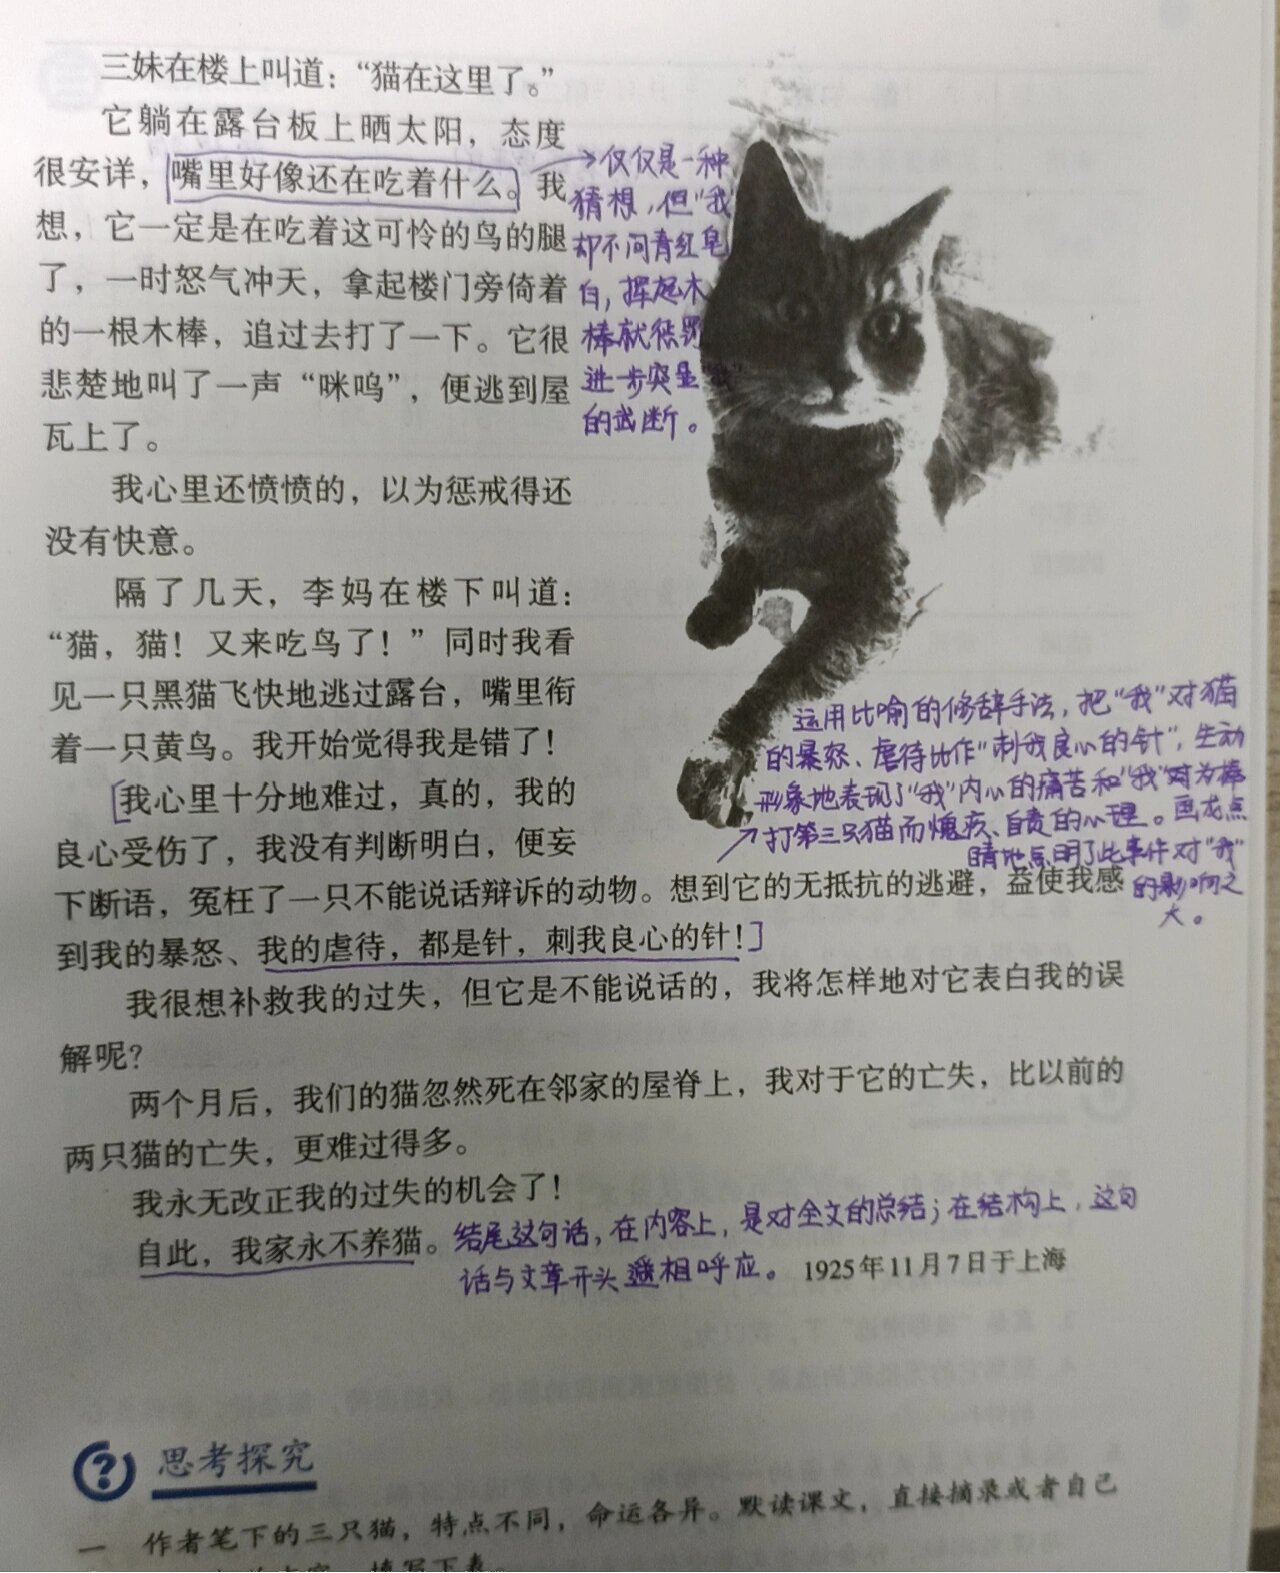 三妹在楼上叫道：“猫在这里了。”
它躺在露台板上晒太阳，态度
很安详，嘴里好像还在吃着什么。我
想，它一定是在吃着这可怜的鸟的腿
了，一时怒气冲天，拿起楼门旁倚着
的一根木棒，追过去打了一下。它很
悲楚地叫了一声“咪呜”，便逃到屋
瓦上了。
我心里还愤愤的，以为惩戒得还
没有快意。
隔了几天，李妈在楼下叫道：
“猫，猫！又来吃鸟了！”同时我看
见一只黑猫飞快地逃过露台，嘴里衔
着一只黄鸟。我开始觉得我是错了！
我心里十分地难过，真的，我的
良心受伤了，我没有判断明白，便妄
下断语，冤枉了一只不能说话辩诉的动物。想到它的无抵抗的逃避，益使我感
到我的暴怒、我的虐待，都是针，刺我良心的针！
我很想补救我的过失，但它是不能说话的，我将怎样地对它表白我的误
解呢？
两个月后，我们的猫忽然死在邻家的屋脊上，我对于它的亡失，比以前的
两只猫的亡失，更难过得多。
我永无改正我的过失的机会了！
自此，我家永不养猫。
1925年11月7日于上海
仅仅是一种
猜想，但“我”
却不问青红皂
白，挥起木
棒就惩罚
进一步突显“我”
的武断。
运用比喻的修辞手法，把“我”对猫
的暴怒、虐待比作“刺我良心的针”，生动
形象地表现了“我”内心的痛苦和“我”对为棒
打第三只猫而愧疚、自责的心理。画龙点
睛地点明了此事件对“我”
的影响之
大。
结尾这句话，在内容上，是对全文的总结；在结构上，这句
话与文章开头遥相呼应。
思考探究
一 作者笔下的三只猫，特点不同，命运各异。默读课文，直接摘录或者自己
填写下表。